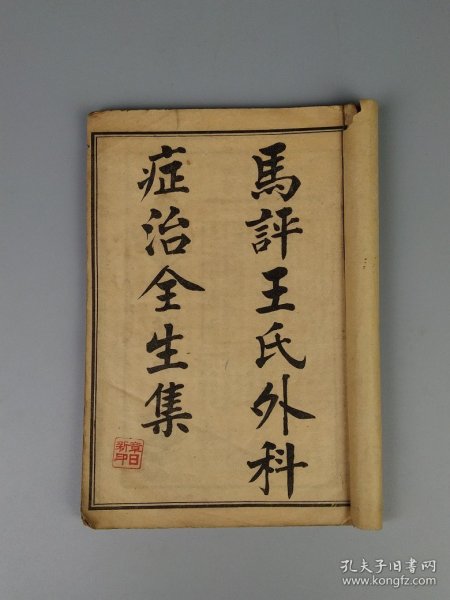 馬評王氏外科
症治全生集
章日
新印
孔夫子旧书网
www.kongfz.com